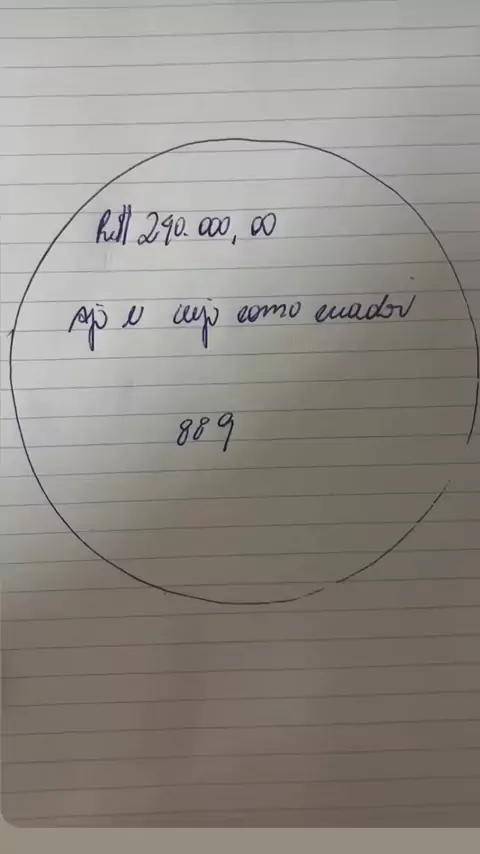 R$ 290.000,00
Ajo e vejo como criador
889